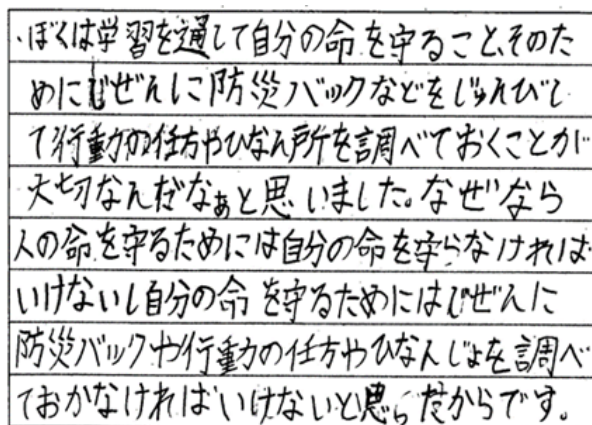 ・ぼくは学習を通して自分の命を守ること、そのた
めにじぜんに防災バックなどをじゅんびし
て行動の仕方やひなん所を調べておくことが
大切なんだなぁと思いました。なぜなら
人の命を守るためには自分の命を守らなければ
いけないし自分の命を守るためにはじぜんに
防災バックや行動の仕方やひなんじょを調べ
ておかなければいけないと思ったからです。